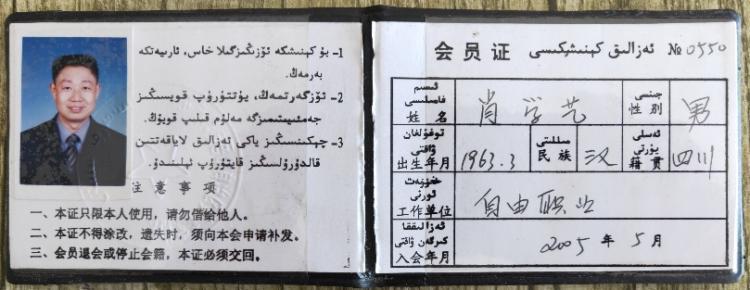 1- بۇ كېنىشكە ئۆزىڭىزگىلا خاس، ئارىيەتكە
بەرمەڭ.
2- ئۆزگەرتمەڭ، يۈتتۈرۈپ قويسىڭىز
جەمئىيىتىمىزگە مەلۇم قىلىپ قويۇڭ.
3- چېكىنسىڭىز ياكى ئەزالىق لاياقەتتىن
قالدۇرۇلسىڭىز قايتۇرۇپ ئېلىنىدۇ.
注意事项
一、本证只限本人使用，请勿借给他人。
二、本证不得涂改，遗失时，须向本会申请补发。
三、会员退会或停止会籍，本证必须交回。
会员证 ئەزالىق كېنىشكىسى № 0550
ئىسىم فامىلىسى
姓名 肖学艺
جىنسى
性别 男
تۇغۇلغان ۋاقتى
出生年月 1963.3
مىللىتى
民族 汉
ئەسلى يۇرتى
籍贯 四川
خىزمەت ئورنى
工作单位 自由职业
ئەزالىققا كىرگەن ۋاقتى
入会年月 2005 年 5 月